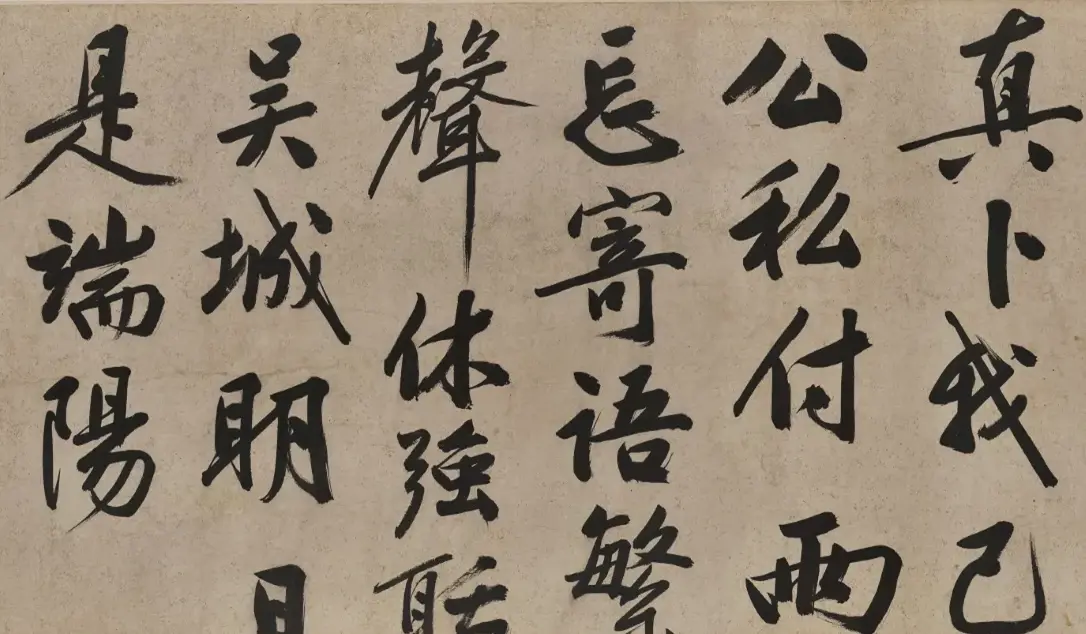 真卜我己
公私付兩
忘寄語繁
聲休強聒
吳城明日
是端陽